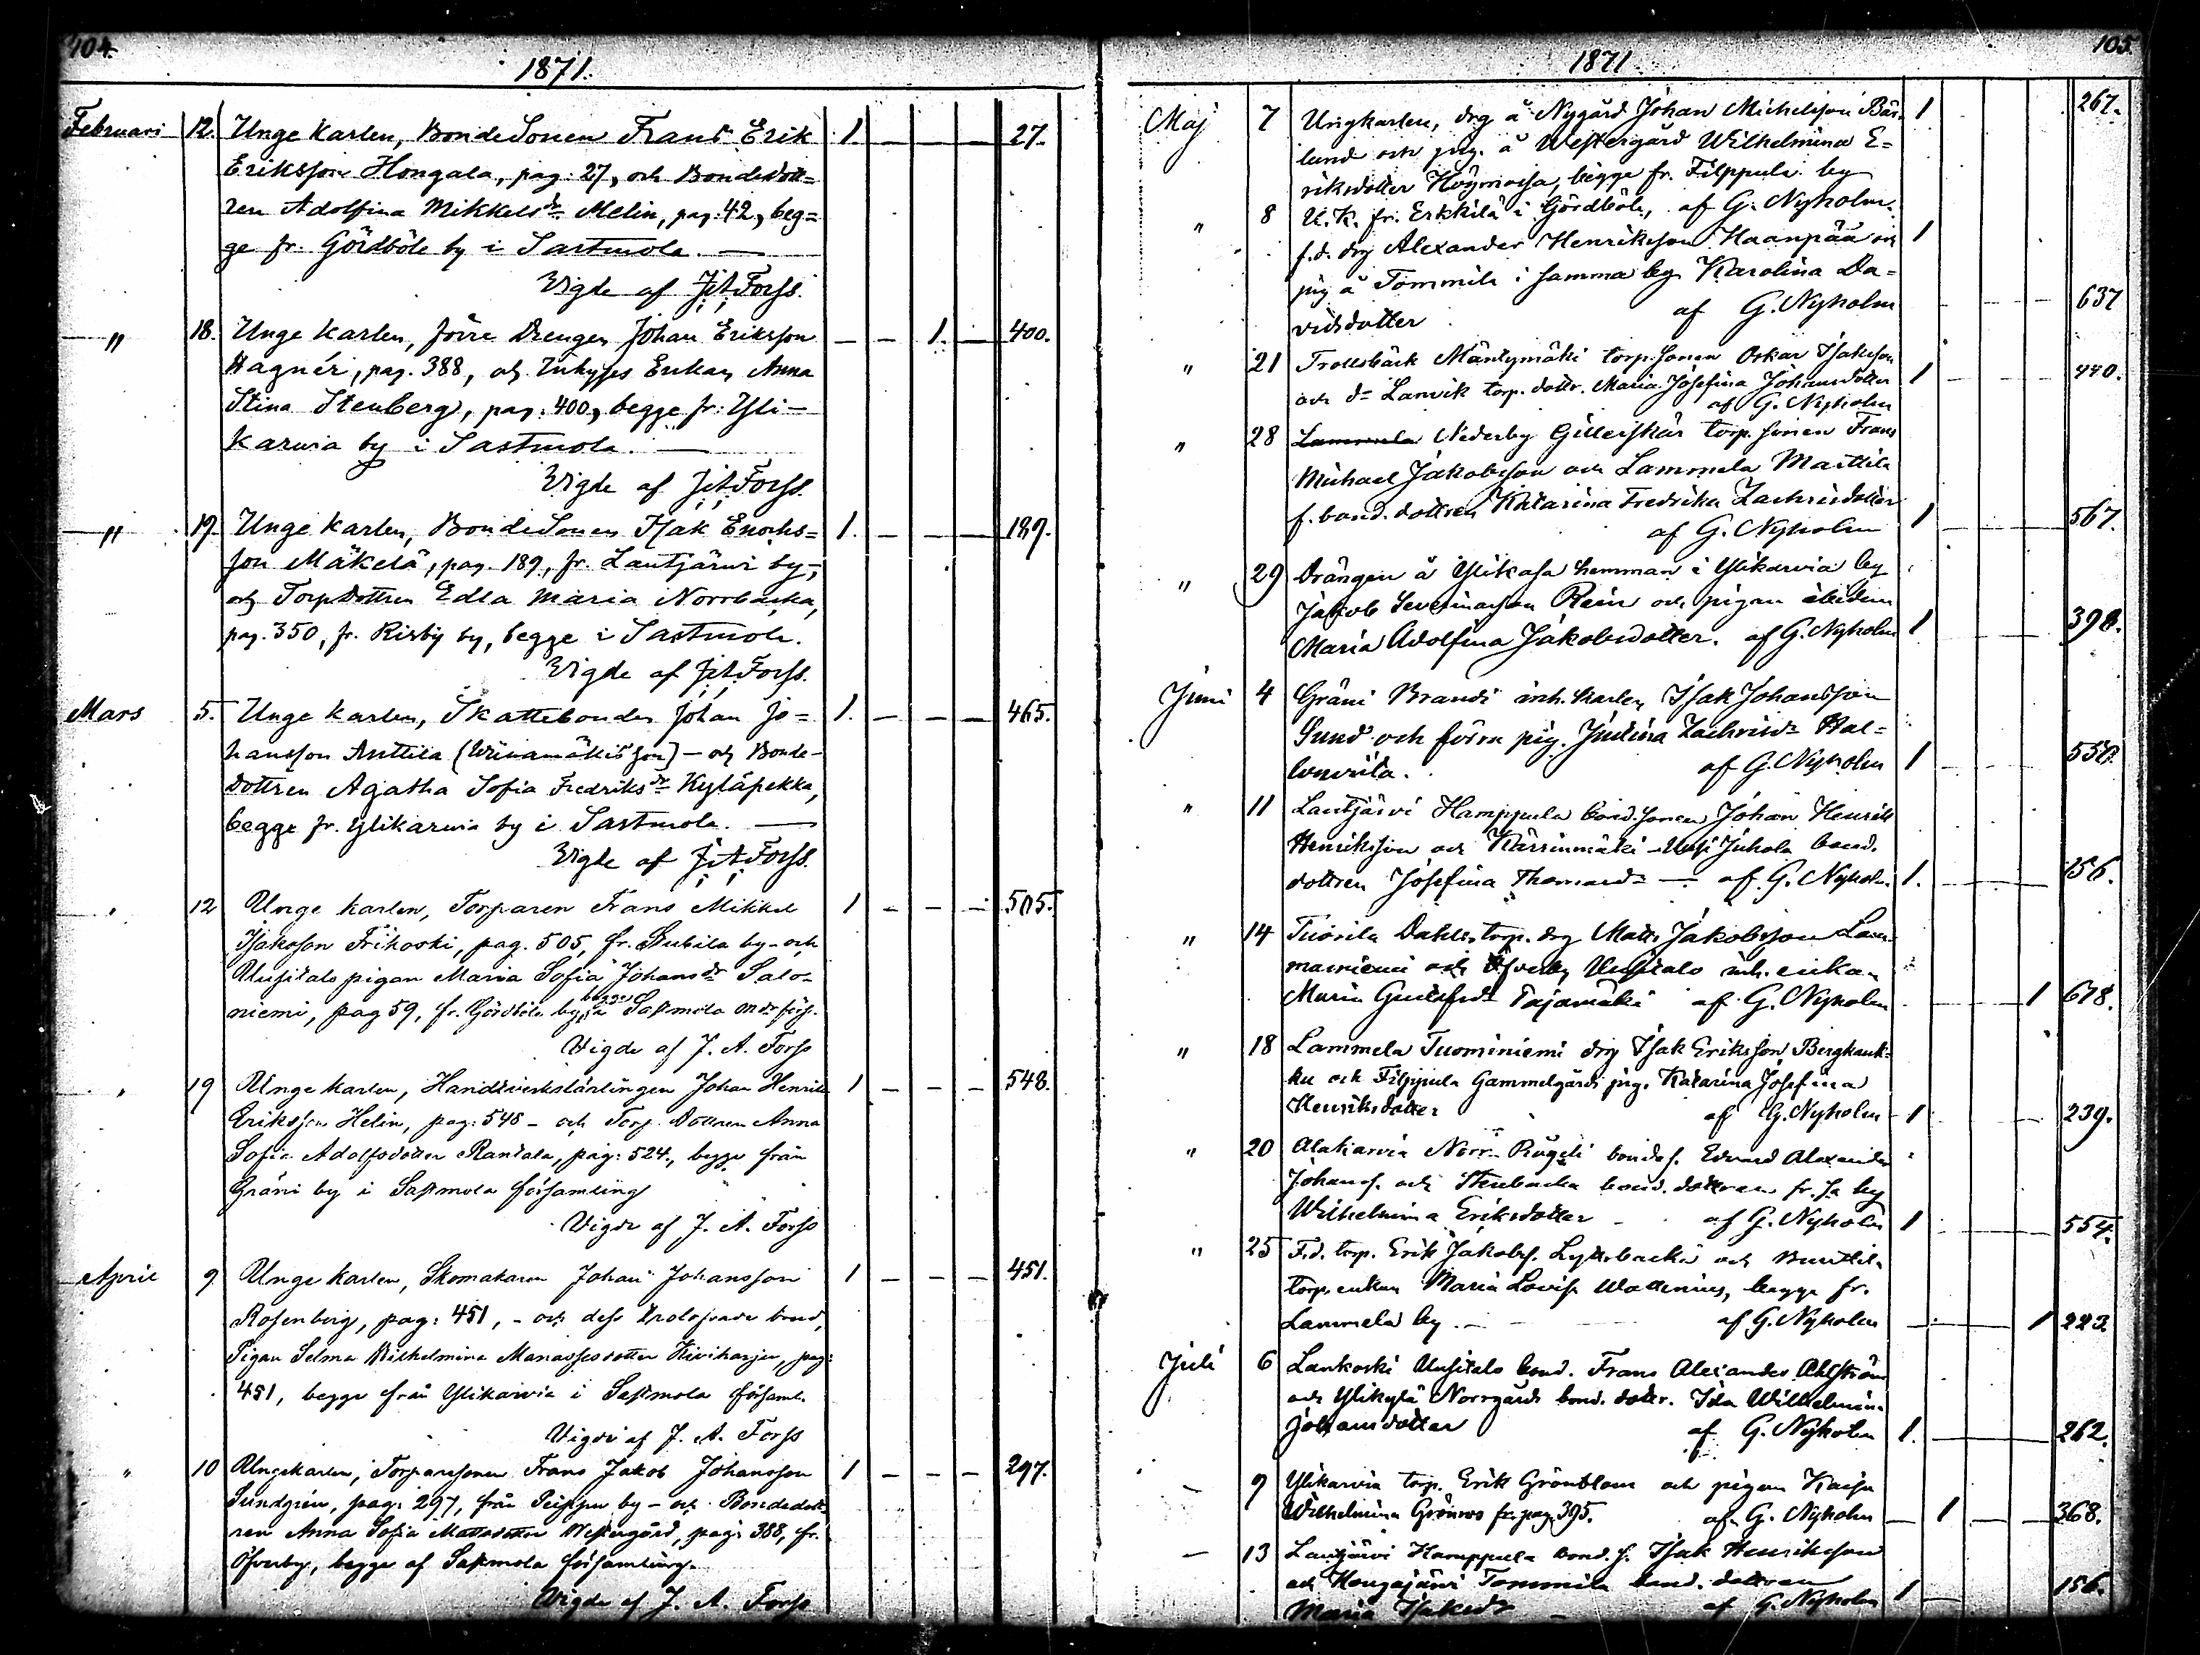 104.
1871.
Februari 12. Unge Karlen, BondeSonen Frans Erik 1. – – – 27.
Eriksson Hongala, pag. 27, och Bondedott=
ren Adolfina Mikkelsdr Melin, pag. 42, beg=
ge fr. Gördböle by i Sastmola. —
Vigde af J. A. Forss.
" 18. Unge Karlen, förre Drengen Johan Eriksson – – 1. – 400.
Hagnér, pag. 388, och Enkan Anna
Stina Stenberg, pag. 400, begge fr. Yli-
karvia by i Sastmola. —
Vigde af J. A. Forss.
" 19. Unge Karlen, BondeSonen Isak Enochs= 1. – – – 189.
son Mäkelä, pag. 189, fr. Lautjärvi by,
och TorpDottren Edla Maria Norrbacka,
pag. 350, fr. Risby by, begge i Sastmola.
Vigde af J. A. Forss.
Mars 5. Unge Karlen, Skattebonden Johan Jo= 1. – – – 465.
hansson Anttila – och Bonde-
dottren Agatha Sofia Fredriksdr Kyläpekka,
begge fr. Ylikarvia by i Sastmola. —
Vigde af J. A. Forss.
" 12 Unge Karlen, Torparen Frans Mikkel 1 – – – 505.
Isaksson Trikoski, pag. 505, fr. by – och
Uusitalo pigan Maria Sofia Johansdr Salo-
niemi, pag 59, fr. Gördböle by, begge Sastmola
Vigde af J. A. Forss
" 19 Unge Karlen, Handtverkslärlingen Johan Henrik 1 – – – 548.
Eriksson Helin, pag. 548 – och Torp. Dottren Anna
Sofia Adolfsdotter Rantala, pag: 524, begge från
Gräni by i Sastmola församling
Vigde af J. A. Forss
April 9 Unge Karlen, Skomakaren Johan Johansson 1 – – – 451.
Rosenberg, pag: 451, – och dess trolofvade brud,
Pigan Selma Wilhelmina Manassesdotter Kivikarju, pag:
451, begge från Ylikarvia i Sastmola församl.
Vigde af J. A. Forss
" 10 Ungekarlen, Torparesonen Frans Jakob Johansson 1 – – – 297.
Sundgrén, pag: 297, från by – och Bondedott-
ren Anna Sofia Mattsdotter Westergård, pag: 388, fr.
Öfverby, begge af Sastmola församling.
Vigde af J. A. Forss
105.
1871
Maj 7 Ungkarlen, drg å Nygård Johan Michelsson Bäck- 1 267.
lund och pig. å Westergård Wilhelmina E=
riksdotter Högmossa, begge fr. Filppula by
af G. Nyholm.
" 8 U. K. fr. Erkkilä i Gördböle,
f. d. drg Alexander Henriksson Haanpää och 1
pig å Tommila i samma by Karolina Da=
vidsdotter af G. Nyholm 637
" 21 Trollsbäck Mäntymäki torp. sonen Oskar Isaksson
och do Lanvik torp. dottr. Maria Josefina Johansdotter 1 440.
af G. Nyholm
" 28 Lammela Nederby torp. sonen Frans
Michael Jakobsson och Lammela Marttila
f. bond. dottren Katarina Fredrika Zachrisdotter
af G. Nyholm 1 567.
" 29 Drängen å Ylikasa hemman i Ylikarvia by
Jakob Severinasson Rein och pigan ibidem
Maria Adolfina Jakobsdotter. af G. Nyholm 1 398.
Juni 4 Gräni Brandi inh. karlen Isak Johansson
Sund och förra pig. Justina Zachrisdr Hal=
af G. Nyholm 1 550.
" 11 Lautjärvi Hamppula bond. sonen Johan Henrik
Henriksson och Kärrinmäki Uusi Juhola bond.
dottren Josefina Thomasdr — af G. Nyholm 1. 156.
" 14 Tuorila Dahls torp. drg Matts Jakobsson Lam-
maniemi och Öfverby Uusitalo inh. enkan
Maria Gustafsdr Pajamäki af G. Nyholm 1 678.
" 18 Lammela Tuominiemi drg Isak Eriksson
och Filppula Gammelgårds pig. Katarina Josefina
Henriksdotter af G. Nyholm 1 239.
" 20 Alakarvia Norr- bondes. Edvard Alexander
Johanss. och Stenbacka bond. dottren fr. sa by
Wilhelmina Eriksdotter af G. Nyholm 1 554.
" 25 F.d. torp. Erik Jakobss. och
torp. enkan Maria Lovisa Wallenius, begge fr.
Lammela by. – af G. Nyholm 1 223
Juli 6 Lankoski Uusitalo bond. Frans Alexander Ahlström
och Ylikylä Norrgårds bond. dotter. Ida Wilhelmina
Johansdotter af G. Nyholm 1. 262.
– 9 Ylikarvia torp. Erik Grönblom och pigan Kaisa
Wilhelmina Grönros fr. pag. 395. af G. Nyholm – 1 – – 368.
– 13 Lautjärvi Hamppula bond. s. Isak Henriksson
och Tommila bond. dottren
Maria Isaksdr af G. Nyholm 1 156.